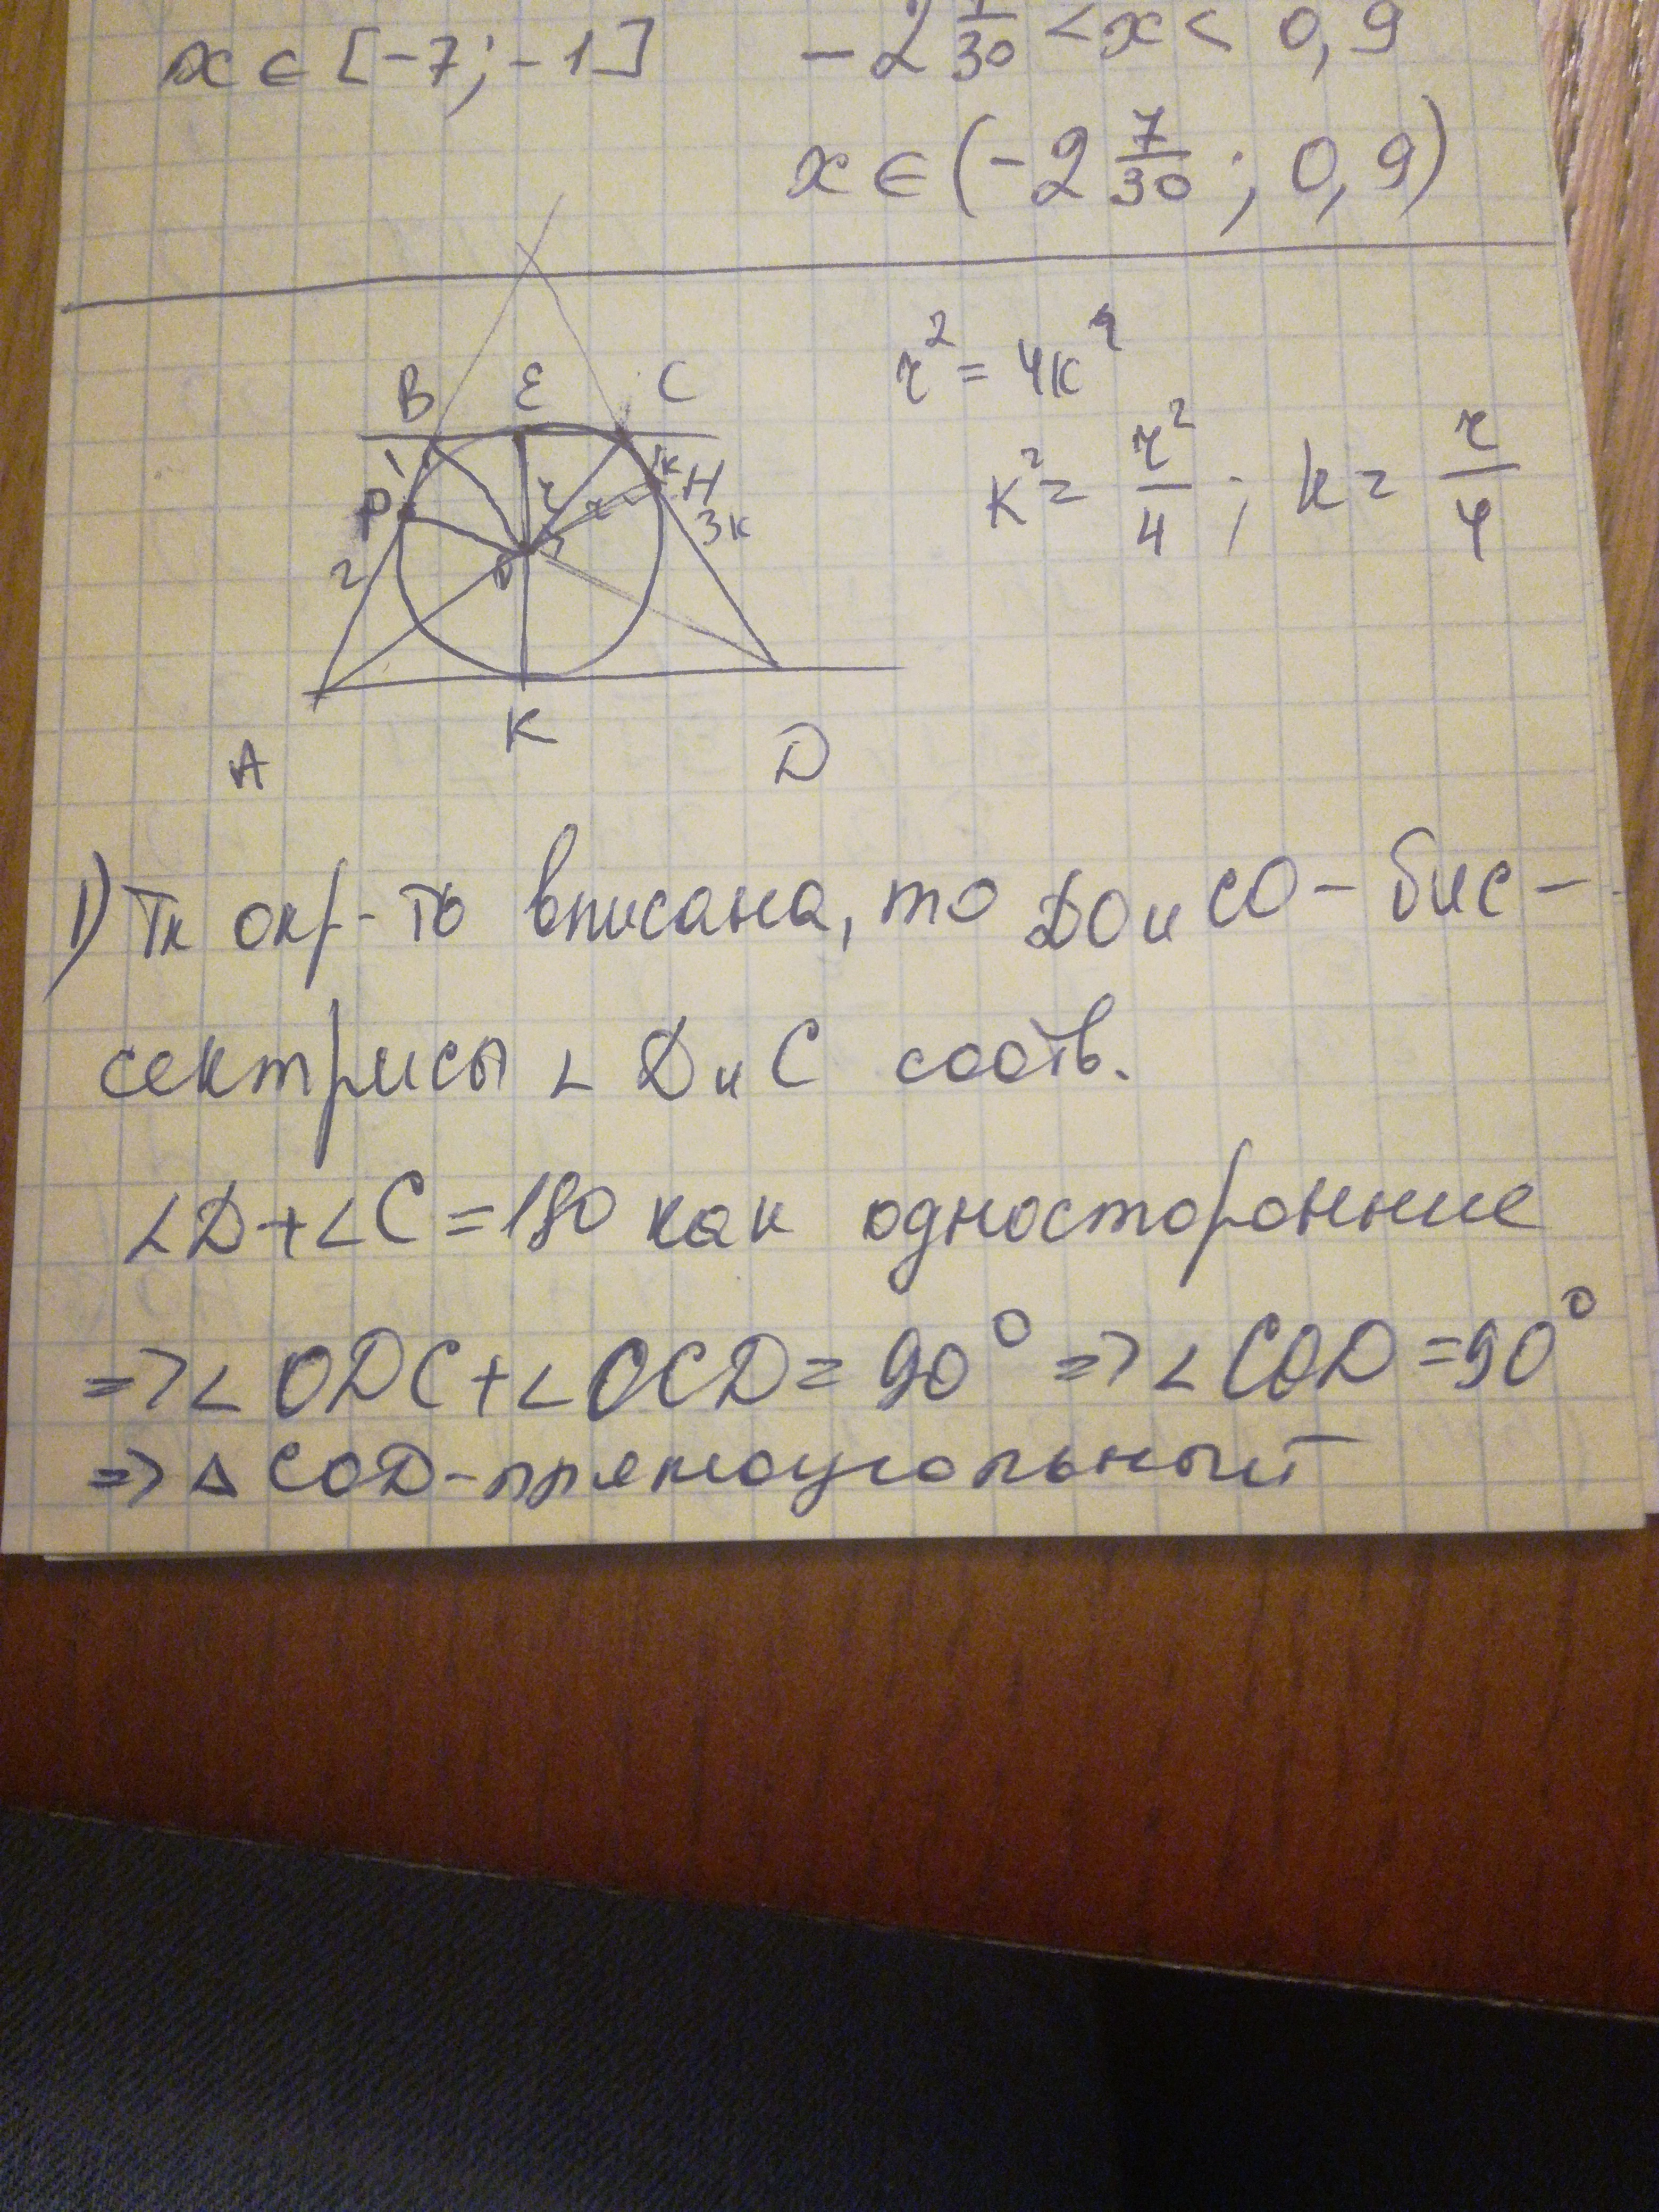 x ∈ [-7; -1]
-2 7/30 < x < 0,9
x ∈ (-2 7/30; 0,9)
B E C
1 k H
P r r 3k
2 O
K
A D
r² = 4k²
k² = r²/4; k = r/4
1) Тк окр-ть вписана, то DO и CO - бис-
сектрисы ∠ D и C соотв.
∠D+∠C=180 как односторонние
=> ∠ ODC+∠OCD=90° => ∠COD=90°
=> △ COD-прямоугольный